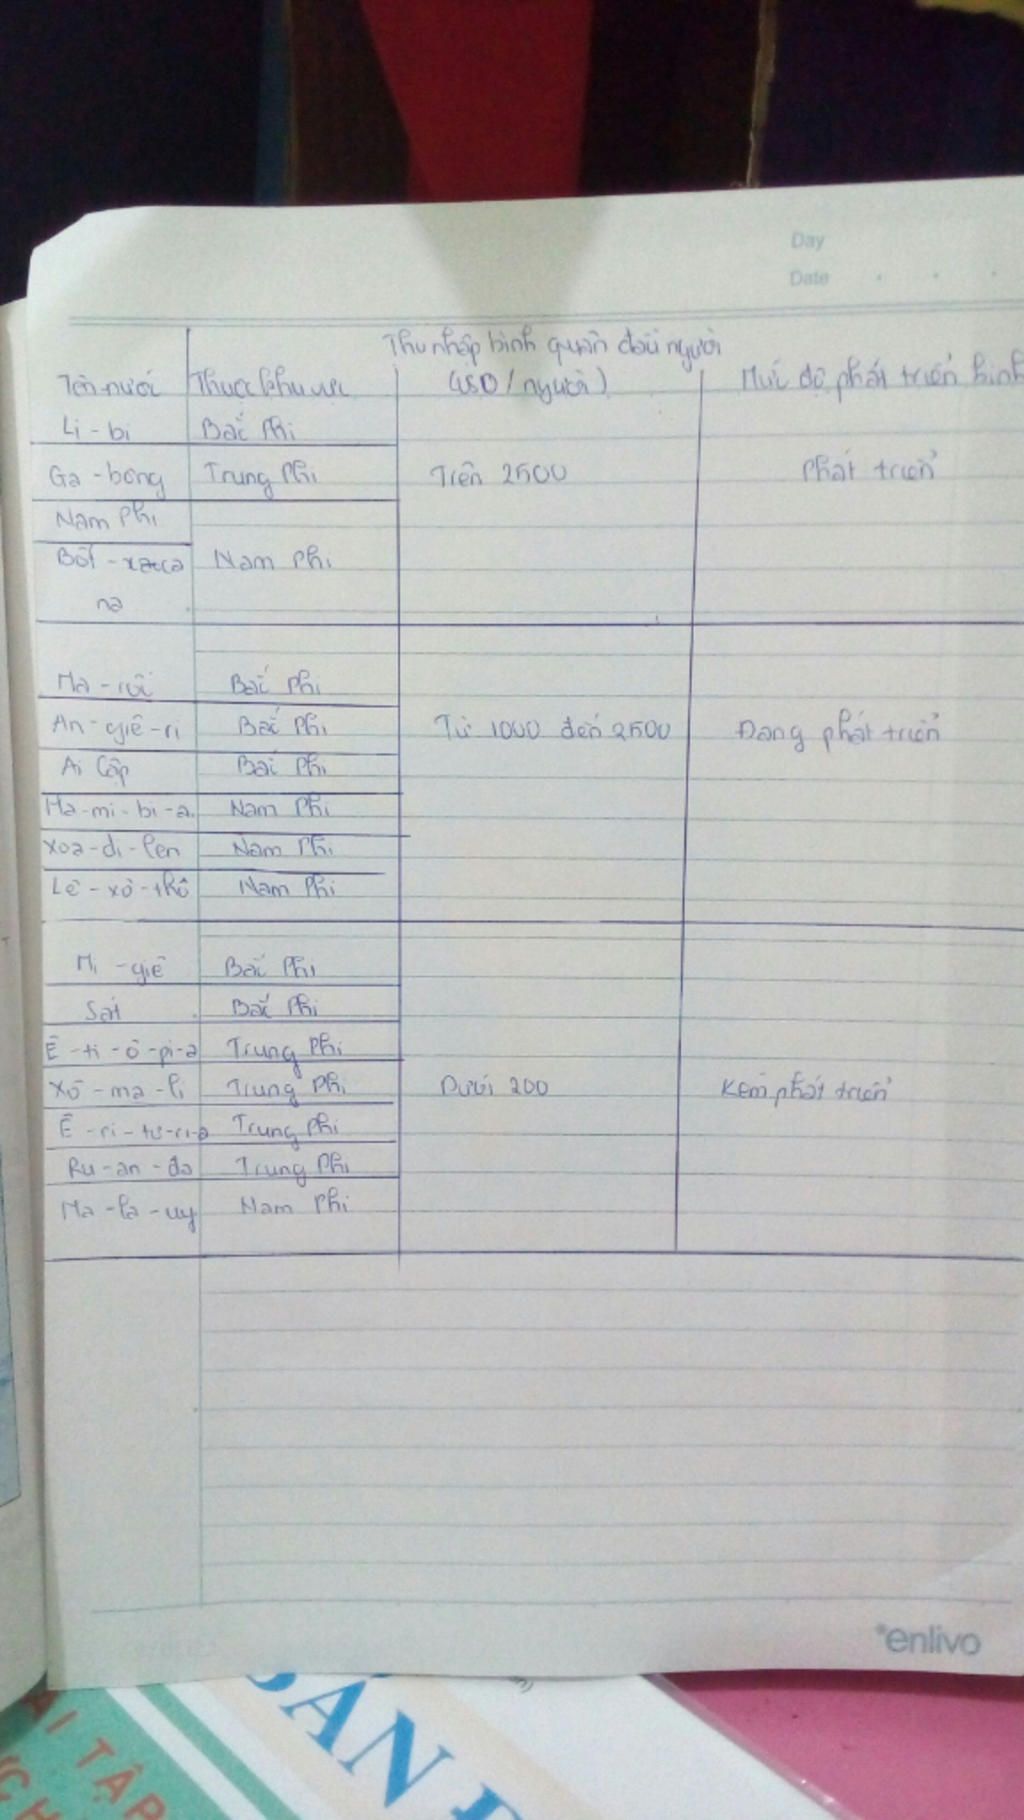 Day
Date
Thu nhập bình quân đầu người
Tên nước Thuộc khu vực (USD/người) Mức độ phát triển kinh
Li - bi Bắc Phi
Ga - bông Trung Phi Trên 2500 Phát triển
Nam Phi
Bốt - xoa Nam Phi
na
Ma - rốc Bắc Phi
An - giê - ri Bắc Phi Từ 1000 đến 2500 Đang phát triển
Ai Cập Bắc Phi
Na - mi - bi - a Nam Phi
Xoa - di - len Nam Phi
Lê - xô - thô Nam Phi
Ni - giê Bắc Phi
Sát Bắc Phi
Ê - ti - ô - pi - a Trung Phi
Xô - ma - li Trung Phi Dưới 200 Kém phát triển
Ê - ri - tơ - ri - a Trung Phi
Ru - an - đa Trung Phi
Ma - la - uy Nam Phi
enlivo
BẢN
ÀI TẬP